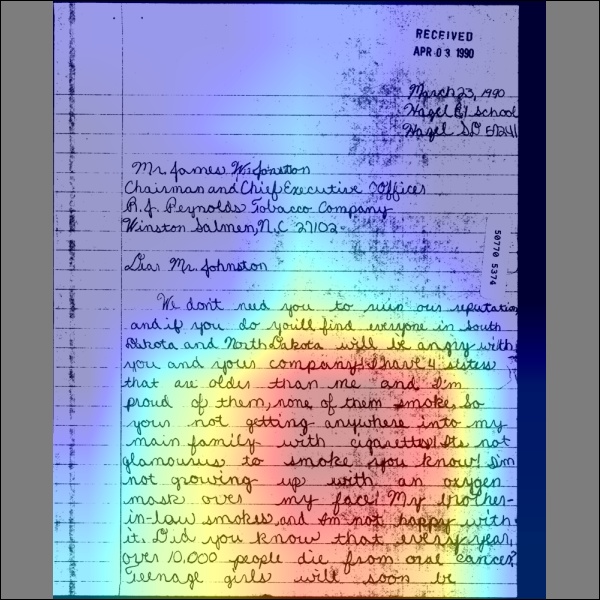 RECEIVED
APR 03 1990
March 23, 1990
Hazel Elf School
Hazel SD 57241
Mr. James W. Johnston
Chairman and Chief Executive Officer
R.J. Reynolds Tobacco Company
Winston Salmen, N.C 27102
50770 5374
Dear Mr. Johnston
We don't need you to ruin our reputation
and if you do you'll find everyone in South
Dakota and North Dakota will be angry with
you and your company. I have 4 sisters
that are older than me and I'm
proud of them, none of them smoke. So
your not getting anywhere into my
main family with cigarettes! It's not
glamourus to smoke you know! I'm
not growing up with an oxygen
mask over my face! My brother-
in-law smokes, and I'm not happy with
it. Did you know that every year,
over 10,000 people die from oral cancer?
Teenage girls will soon be